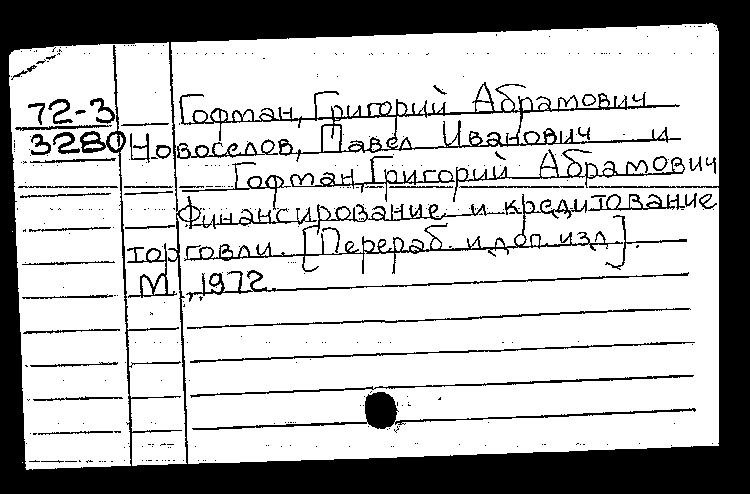 72-3 Гофман, Григорий Абрамович
3280 Новоселов, Павел Иванович и
Гофман, Григорий Абрамович
Финансирование и кредитование
торговли. [Перераб. и доп. изд].
М., 1972.